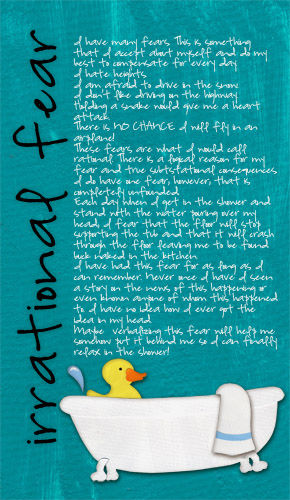 irrational fear
I have many fears. This is something
that I accept about myself and do my
best to compensate for every day.
I hate heights.
I am afraid to drive in the snow.
I don't like driving on the highway.
Holding a snake would give me a heart
attack.
There is NO CHANCE I will fly in an
airplane!
These fears are what I would call
rational. There is a logical reason for my
fear and true substational consequences.
I do have one fear, however, that is
completely unfounded.
Each day when I get in the shower and
stand with the water pouring over my
head, I fear that the floor will stop
supporting the tub and that it will crash
through the floor leaving me to be found
buck naked in the kitchen.
I have had this fear for as long as I
can remember. Never once I have I seen
a story on the news of this happening or
even known anyone of whom this happened
to so I have no idea how I ever got the
idea in my head.
Maybe verbalizing this fear will help me
somehow put it behind me so I can finally
relax in the shower!